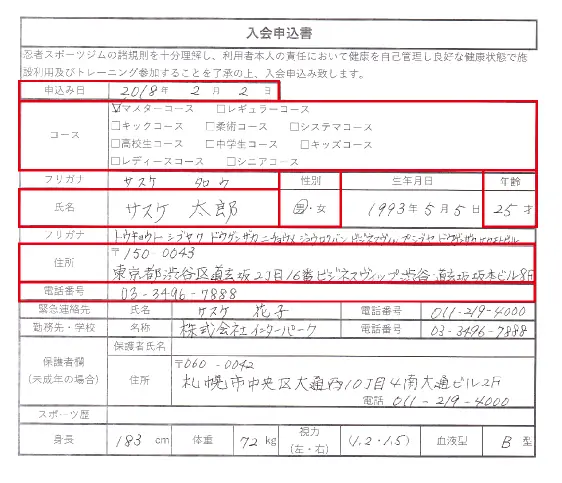 入会申込書
忍者スポーツジムの諸規則を十分理解し、利用者本人の責任において健康を自己管理し良好な健康状態で施
設利用及びトレーニング参加することを了承の上、入会申込み致します。
申込み日 2018年 2月 2日
コース ☑マスターコース □レギュラーコース
□キックコース □柔術コース □システマコース
□高校生コース □中学生コース □キッズコース
□レディースコース □シニアコース
フリガナ サスケ タロウ 性別 生年月日 年齢
氏名 サスケ 太郎 男・女 1993年5月5日 25才
フリガナ トウキョウト シブヤク ドウゲンザカ
住所 〒150-0043
東京都渋谷区道玄坂2丁目16番ビジネスヴィップ渋谷道玄坂坂本ビル8F
電話番号 03-3496-7888
緊急連絡先 氏名 サスケ 花子 電話番号 011-219-4000
勤務先・学校 名称 株式会社インターパーク 電話番号 03-3496-7888
保護者欄
(未成年の場合)
保護者氏名
住所 〒060-0042
札幌市中央区大通西10丁目4南大通ビル2F
電話 011-219-4000
スポーツ歴
身長 183cm 体重 72kg 視力
(左・右) (1.2・1.5) 血液型 B型